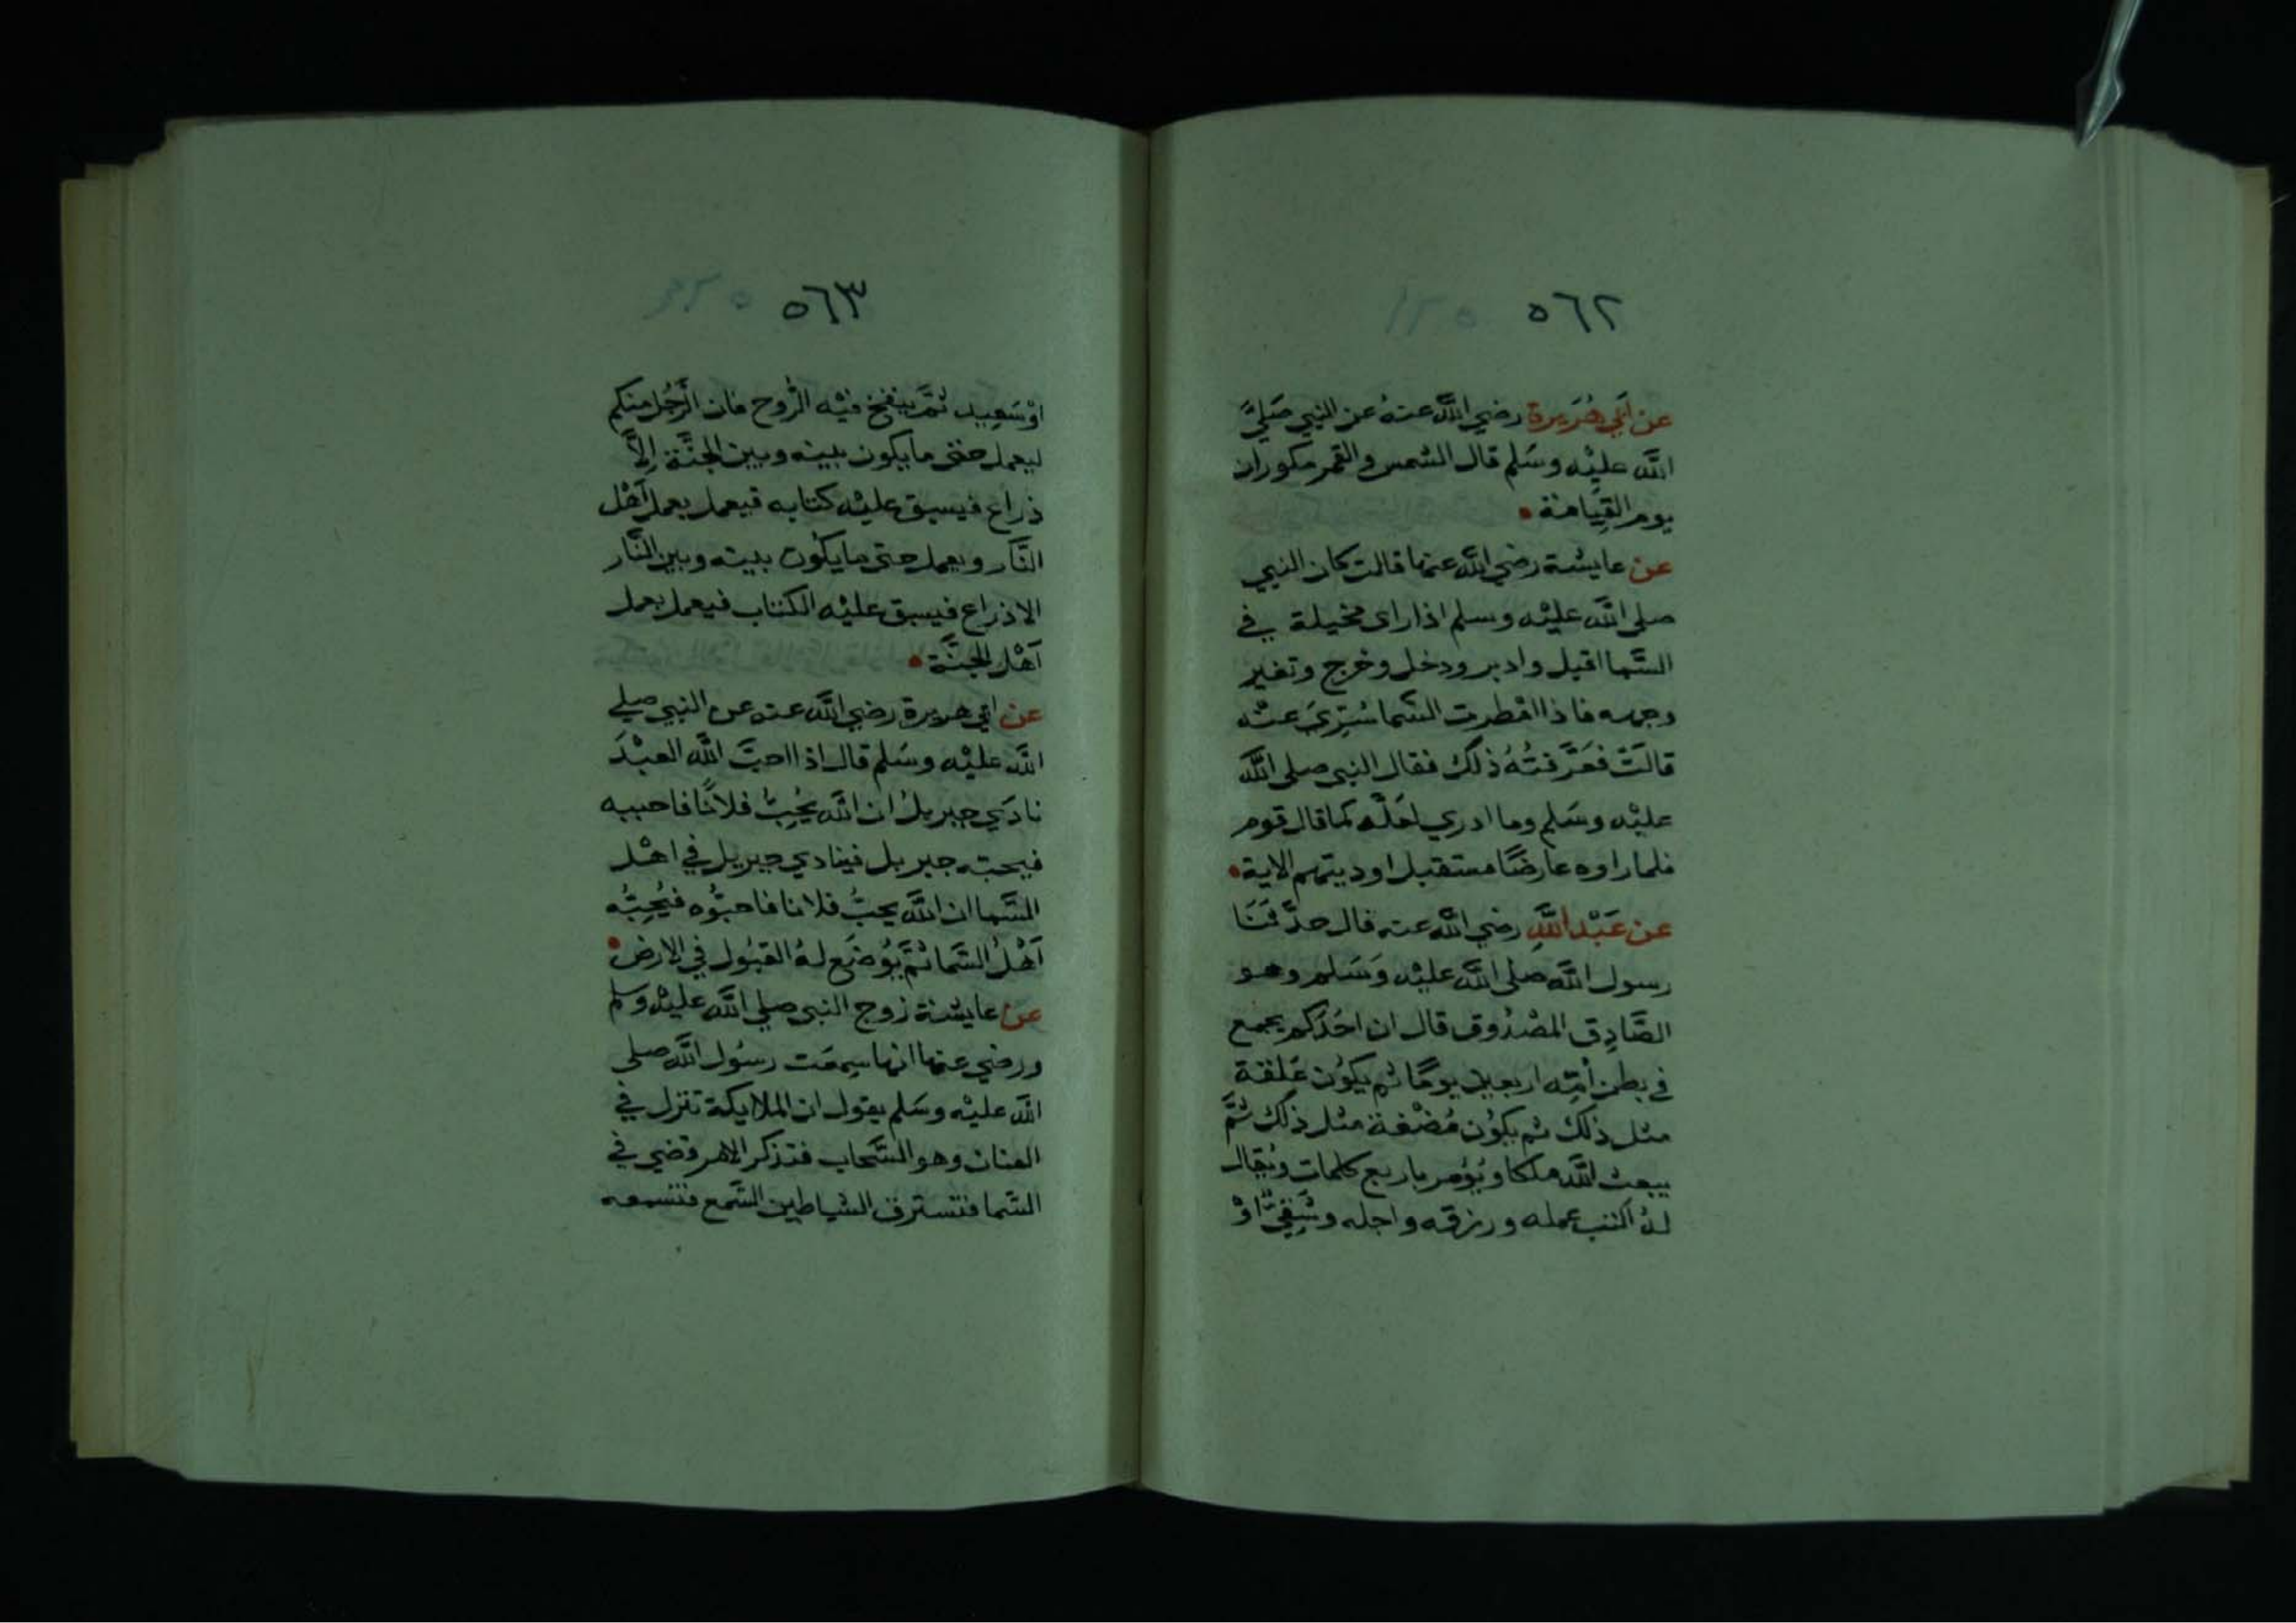 ٥٦٢
عن أبي هُرَيرة رضي اللَّه عنهُ عن النبي صَليَّ
اللَّه عليْه وسَلم قال الشمس والقمر مكوران
يوم القِيَامة
عن عايشة رضي اللَّه عنها قالت كان النبي
صلى اللَّه عليْه وسلم اذا راى مخيلة في
السَّما اقبل وادبر ودخل وخرج وتغير
وجهه فاذا امطرت السَّما سُرِّيَ عنْه
قالَتْ فعَرَّفتُهُ ذلك فقال النبي صلى اللَّه
عليْه وسَلم وما ادري لعَلَّه كما قال قوم
فلما راوه عارضًا مستقبل اوديتهم الاية
عن عَبْد اللَّهِ رضي اللَّه عنه قال حدَّثَنَا
رسول اللَّه صلى اللَّه عليْه وَسَلم وهو
الصَّادِق المصْدُوق قال ان احَدَكم يجمع
في بطن أمّه اربعين يومًا ثم يكوُن عَلقة
مثل ذلك ثم يكوُن مُضْغة مثل ذلك ثمَّ
يبعث اللَّه ملكا ويُؤمر باربع كلمات ويُقال
لهُ اكتب عمله ورزقه واجله وشَقِيٌّ اوْ
٥٦٣
اوْ سَعِيد ثمَّ ينفخ فيْه الرُّوح فان الرَّجُل منكم
ليعمل حتى ما يكون بينه وبين الجنَّة إلاَّ
ذراع فيسبق عليْه كتابه فيعمل بعمل أهْل
النَّار ويعمل حتى ما يكوُن بينه وبين النَّار
الا ذراع فيسبق عليْه الكتاب فيعمل بعمل
أهْل الجنَّة
عن ابي هريرة رضي اللَّه عنه عن النبي صلي
اللَّه عليْه وسَلم قال اذا احبَّ اللَّه العبْدَ
نادَي جبريلُ ان اللَّه يُحِبُّ فلانًا فاحببه
فيحبّه جبريل فينادي جبريل في اهْل
السَّما ان اللَّه يحبُّ فلانا فاحبُّوه فيُحِبُّه
أهْلُ السَّما ثمَّ يُوضَع لهُ القبُول في الارض
عن عايشة زوج النبي صلي اللَّه عليْه وسلم
ورضي عنها انها سِمعَت رسُول اللَّه صلى
اللَّه عليْه وسَلم يقول ان الملايكة تنزل في
العنان وهو السَّحاب فتذكر الامر قضي في
السَّما فتسترق الشياطين السَّمع فتسمعه